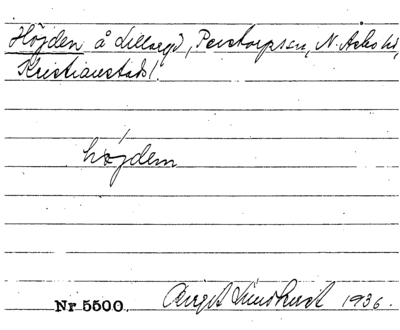 Höjden å Lillaryd, Perstorpssn, N. Åsbo hd,
Kristianstads l.
højdem
Nr 5500. Birgit Sundkvist 1936.